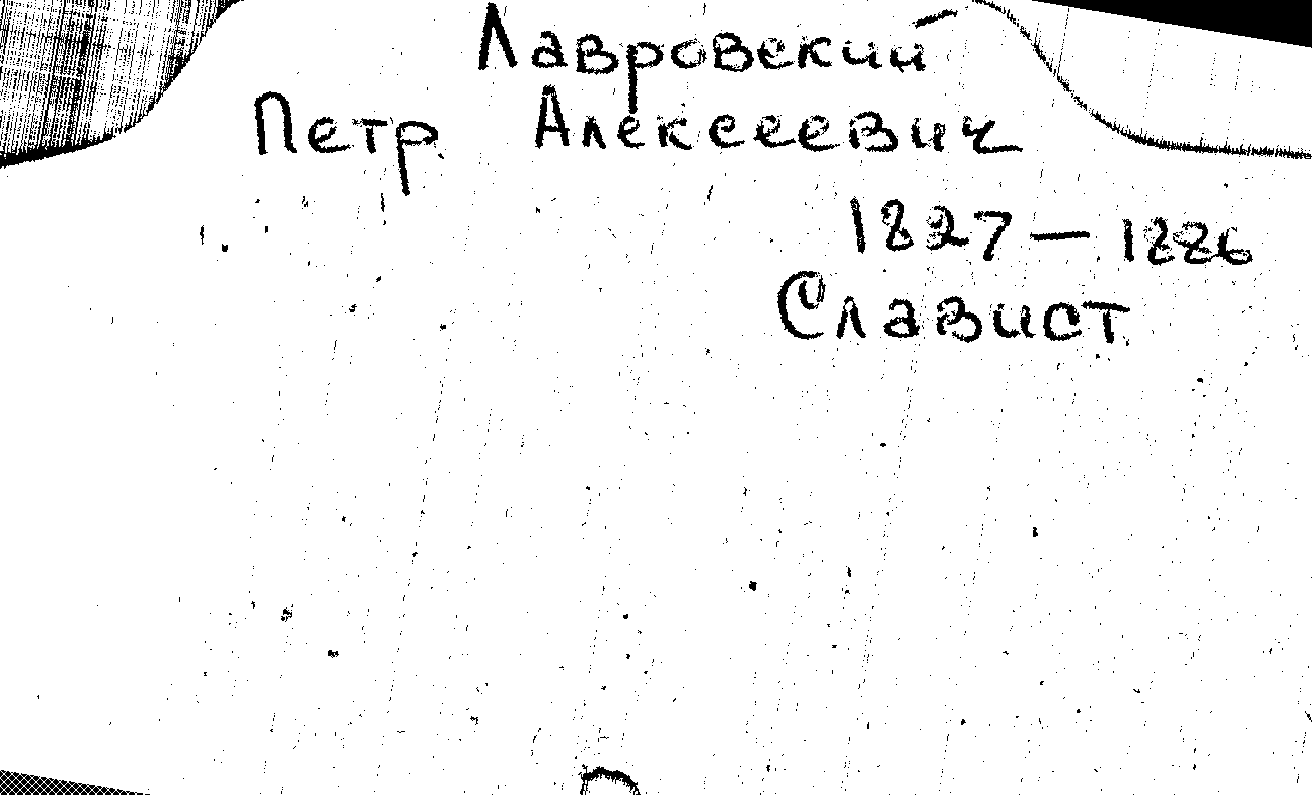 Лавровский
Петр Алексеевич
1827 — 1886
Славист